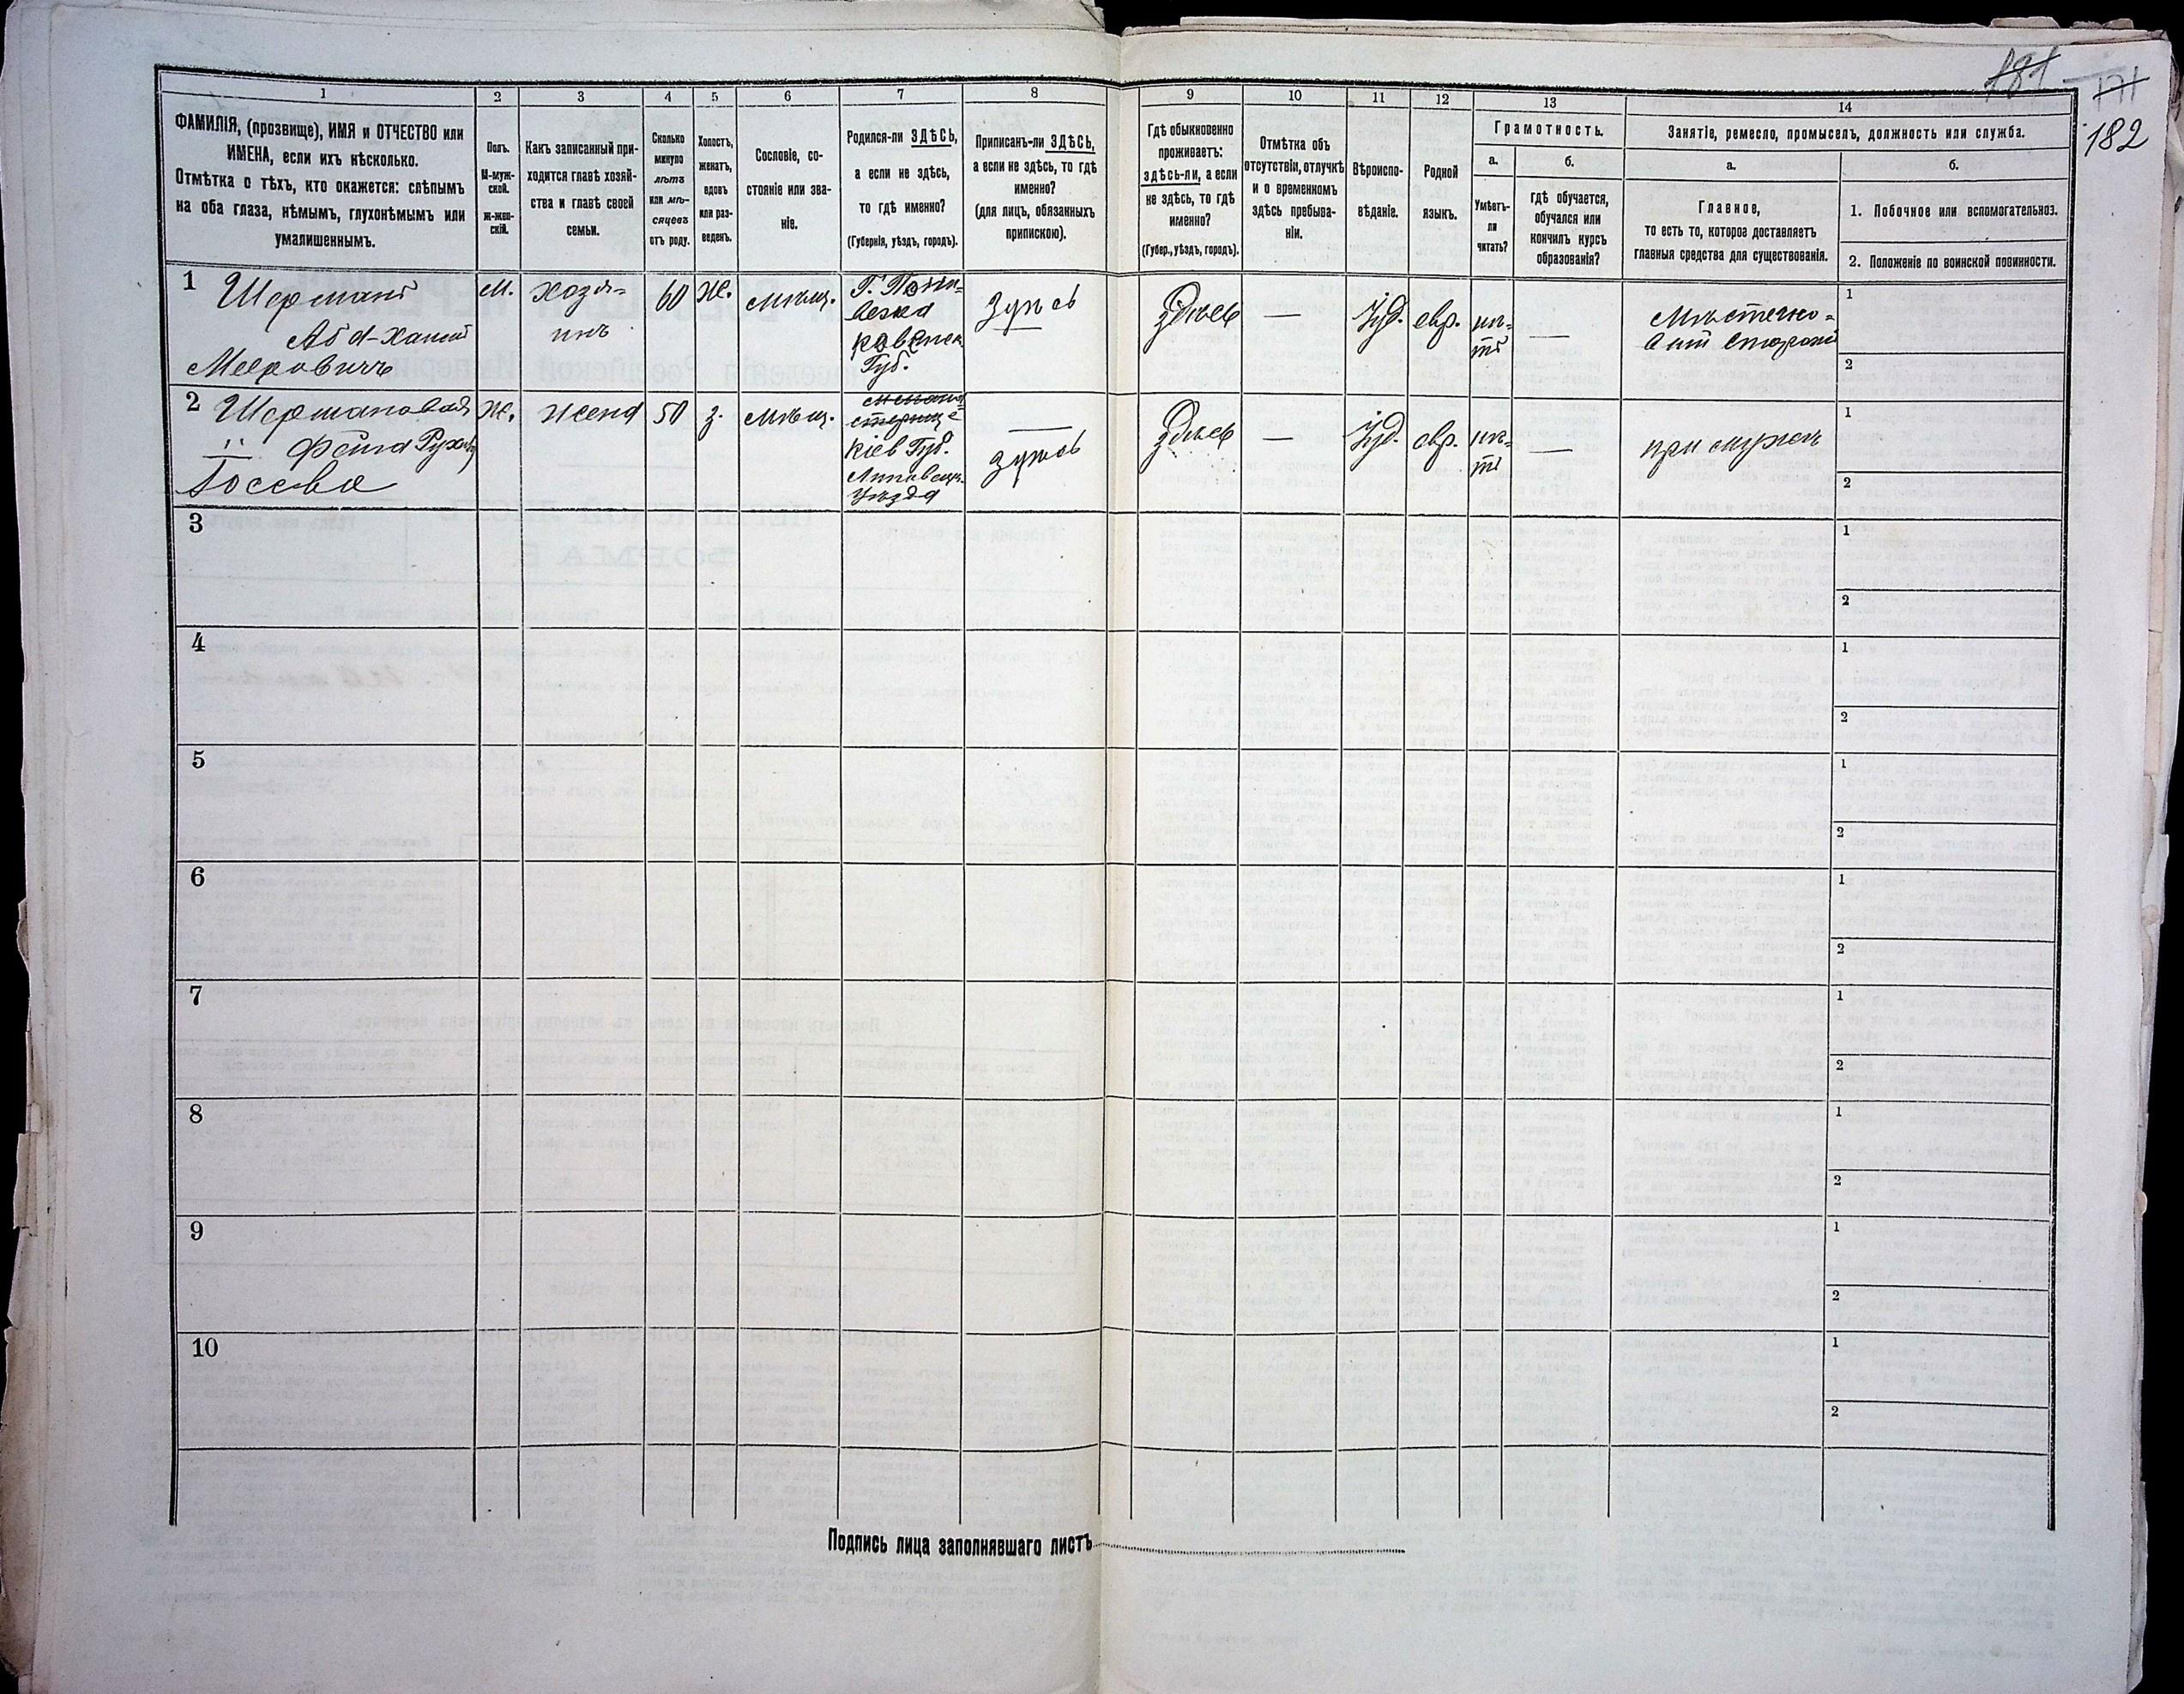 181
171
182
1
2
3
4
5
6
7
8
9
10
11
12
13
14
ФАМИЛІЯ, (прозвище), ИМЯ и ОТЧЕСТВО или
ИМЕНА, если ихъ нѣсколько.
Отмѣтка о тѣхъ, кто окажется: слѣпымъ
на оба глаза, нѣмымъ, глухонѣмымъ или
умалишеннымъ.
Полъ.
М-муж-
ской.
ж-жен-
скій.
Какъ записанный при-
ходится главѣ хозяй-
ства и главѣ своей
семьи.
Сколько
минуло
лѣтъ
или мѣ-
сяцевъ
отъ роду.
Холостъ,
женатъ,
вдовъ
или раз-
веденъ.
Сословіе, со-
стояніе или зва-
ніе.
Родился-ли ЗДѢСЬ,
а если не здѣсь,
то гдѣ именно?
(Губернія, уѣздъ, городъ).
Приписанъ-ли ЗДѢСЬ,
а если не здѣсь, то гдѣ
именно?
(для лицъ, обязанныхъ
припискою).
Гдѣ обыкновенно
проживаетъ:
здѣсь-ли, а если
не здѣсь, то гдѣ
именно?
(Губер., уѣздъ, городъ).
Отмѣтка объ
отсутствіи, отлучкѣ
и о временномъ
здѣсь пребыва-
ніи.
Вѣроиспо-
вѣданіе.
Родной
языкъ.
Грамотность.
а.
Умѣетъ-
ли
читать?
б.
гдѣ обучается,
обучался или
кончилъ курсъ
образованія?
Занятіе, ремесло, промыселъ, должность или служба.
а.
Главное,
то есть то, которое доставляетъ
главныя средства для существованія.
б.
1. Побочное или вспомогательноз.
2. Положеніе по воинской повинности.
1 Шерманъ
Мееровичъ
М.
хозя-
инъ
60
Ж.
мѣщ.
Губ.
здѣсь
здѣсь
—
Іуд.
евр.
нѣ-
тъ
—
1
2
2 Шерманова
Ж.
жена
50
з.
мѣщ.
Кіев Губ.
Липовец.
Уѣзда
—
здѣсь
здѣсь
—
Іуд.
евр.
нѣ-
тъ
—
при мужѣ
1
2
3
1
2
4
1
2
5
1
2
6
1
2
7
1
2
8
1
2
9
1
2
10
1
2
Подпись лица заполнявшаго листъ